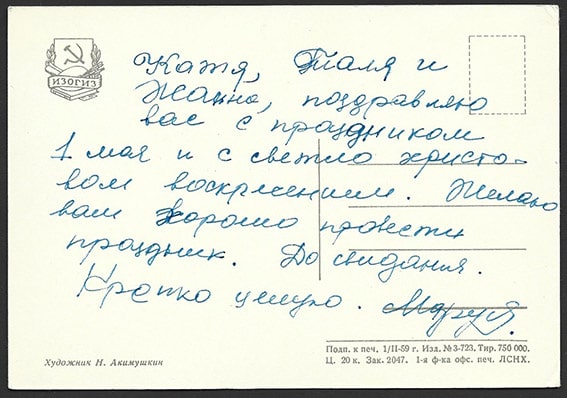 ИЗОГИЗ
Катя, Таля и
Жанна, поздравляю
вас с праздником
1 мая и с светло христо-
вом воскресением. Желаю
вам хорошо провести
праздник. До свидания.
Крепко целую. Маруся.
Художник Н. Акимушкин
Подп. к печ. 1/II-59 г. Изд. № 3-723. Тир. 750 000.
Ц. 20 к. Зак. 2047. 1-я ф-ка офс. печ. ЛСНХ.